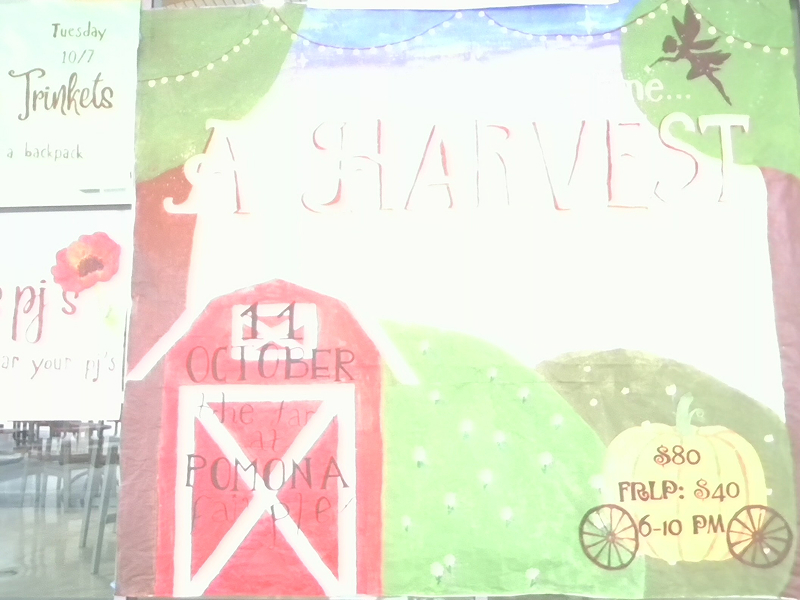 Tuesday
10/7
Trinkets
a backpack
pj's
ar your pj's
ne...
A HARVEST
11
OCTOBER
the far
at
POMONA
fairplex
$80
FRLP: $40
6-10 PM